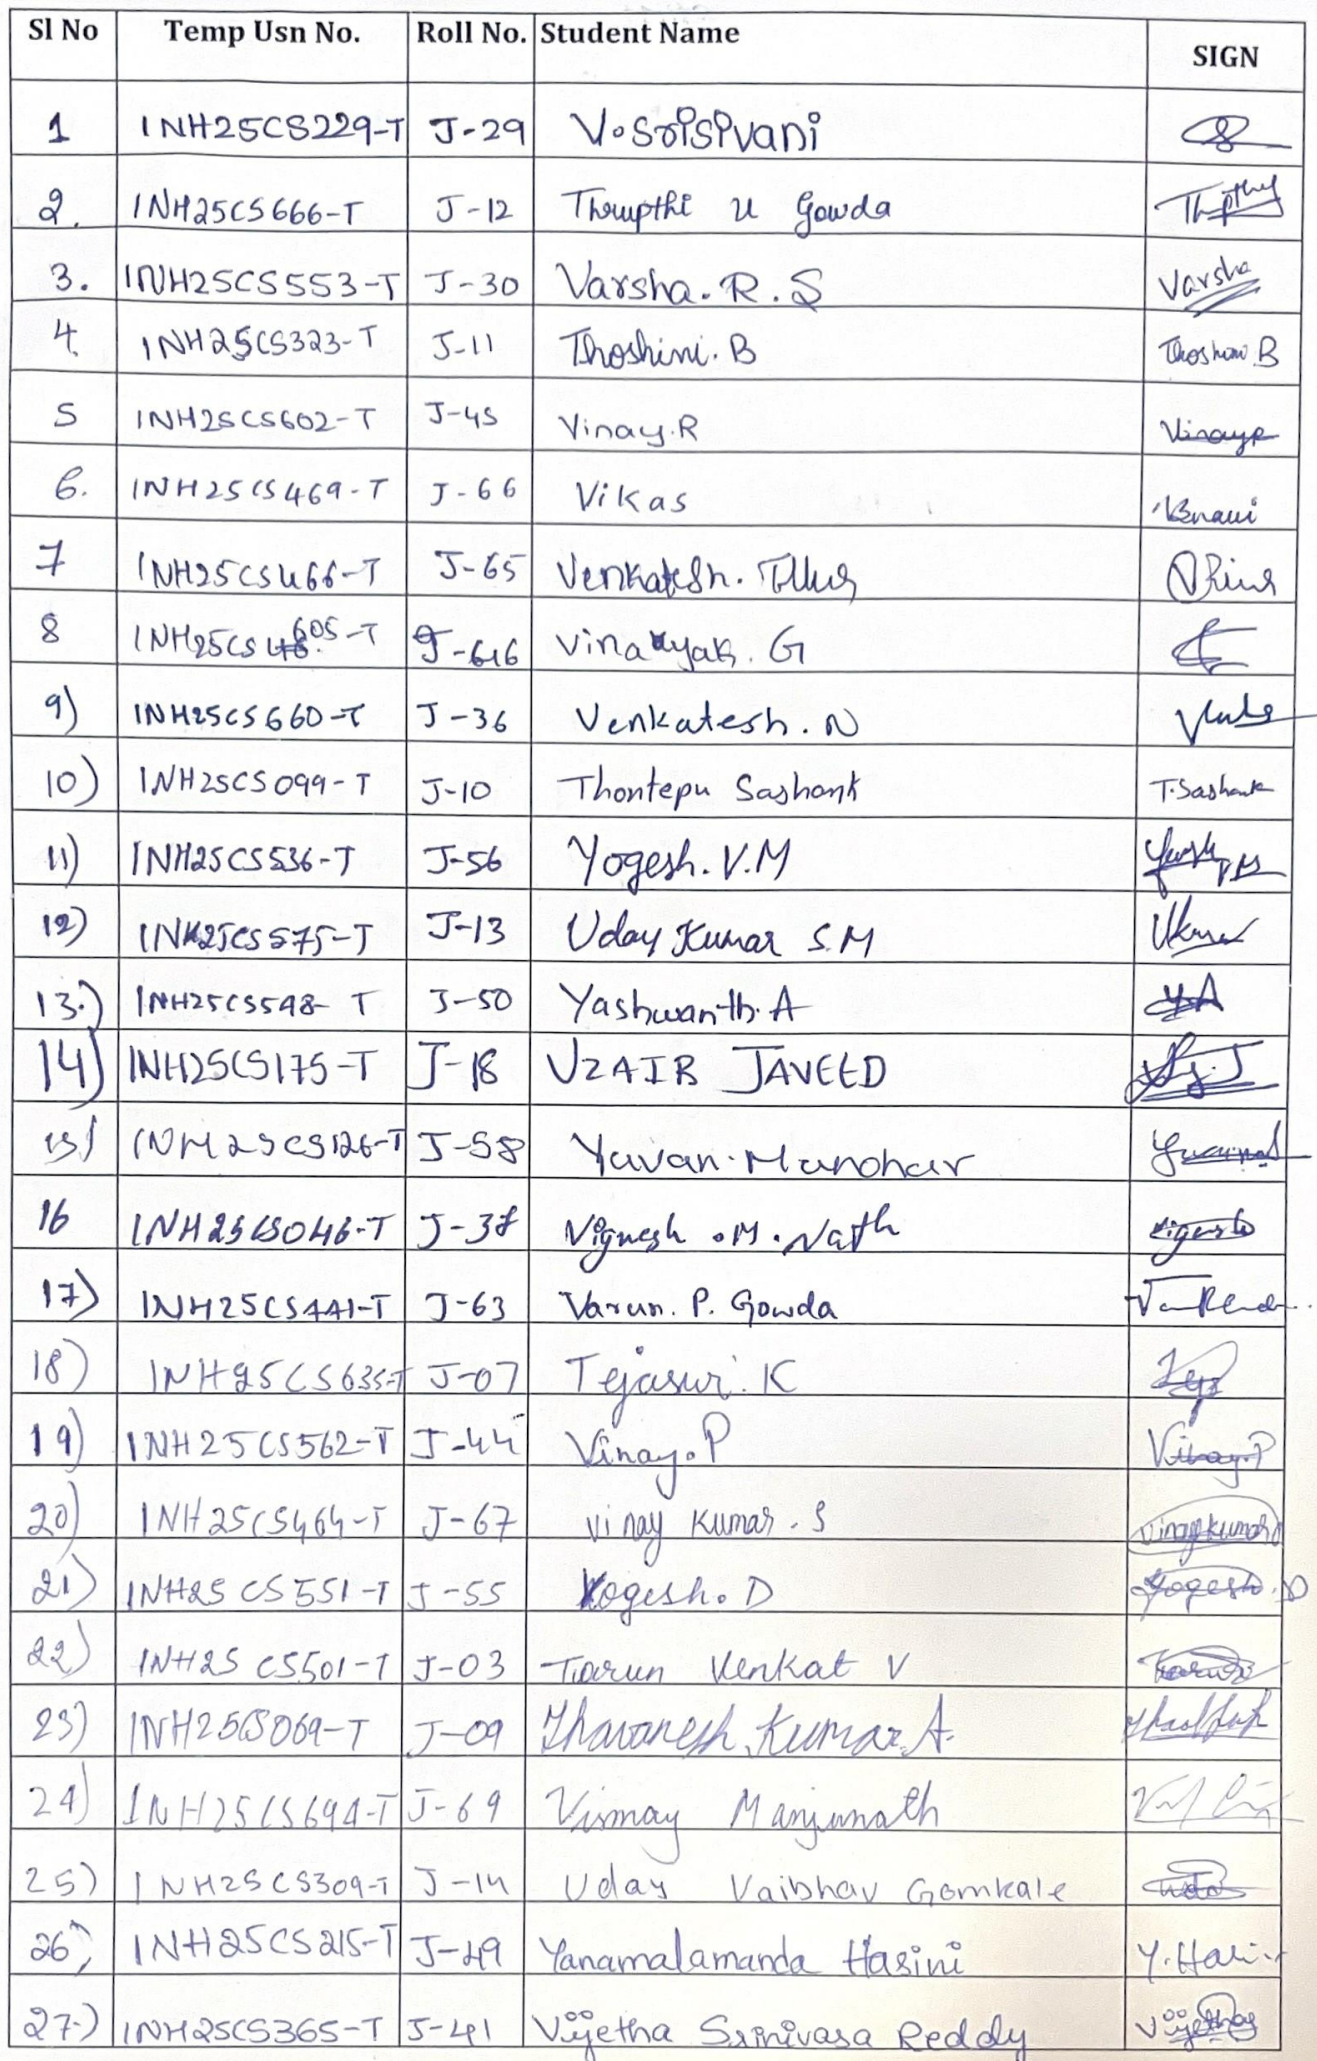 Sl No Temp Usn No. Roll No. Student Name SIGN
1 1NH25CS229-T J-29 V.Srisivani
2. 1NH25CS666-T J-12 Thrupthi U Gowda
3. 1NH25CS553-T J-30 Varsha.R.S Varsha
4. 1NH25CS323-T J-11 Thoshini.B Thoshini B
5 1NH25CS602-T J-45 Vinay.R Vinayr
6. 1NH25CS469-T J-66 Vikas
7 1NH25CS466-T J-65 Venkatesh.
8 1NH25CS 605-T J-616 Vinayak. G
9) 1NH25CS660-T J-36 Venkatesh.N
10) 1NH25CS099-T J-10 Thontepu Sashank T.Sashank
11) 1NH25CS536-T J-56 Yogesh.V.M
12) 1NH25CS575-T J-13 Uday Kumar S.M
13.) 1NH25CS598-T J-50 Yashwanth.A YA
14) 1NH25CS175-T J-18 UZAIR JAVEED
15) 1NH25CS126-T J-58 Yuvan.Manohar
16 1NH25CS046-T J-38 Vignesh .M.Nath
17) 1NH25CS441-T J-63 Varun. P. Gowda
18) 1NH25CS635-T J-07 Tejaswi.K
19) 1NH25CS562-T J-44 Vinay.P Vinay.P
20) 1NH25CS464-T J-67 Vinay Kumar.S Vinaykumar
21) 1NH25CS551-T J-55 Yogesh.D Yogesh.D
22) 1NH25CS501-T J-03 Tarun Venkat V
23) 1NH25CS069-T J-09 Thavanesh Kumar.A.
24) 1NH25CS694-T J-69 Vismay Manjunath
25) 1NH25CS309-T J-14 Uday Vaibhav Gomkale
26) 1NH25CS215-T J-49 Yanamalamanda Hasini Y.Hasi
27.) 1NH25CS365-T J-41 Vijetha Srinivasa Reddy